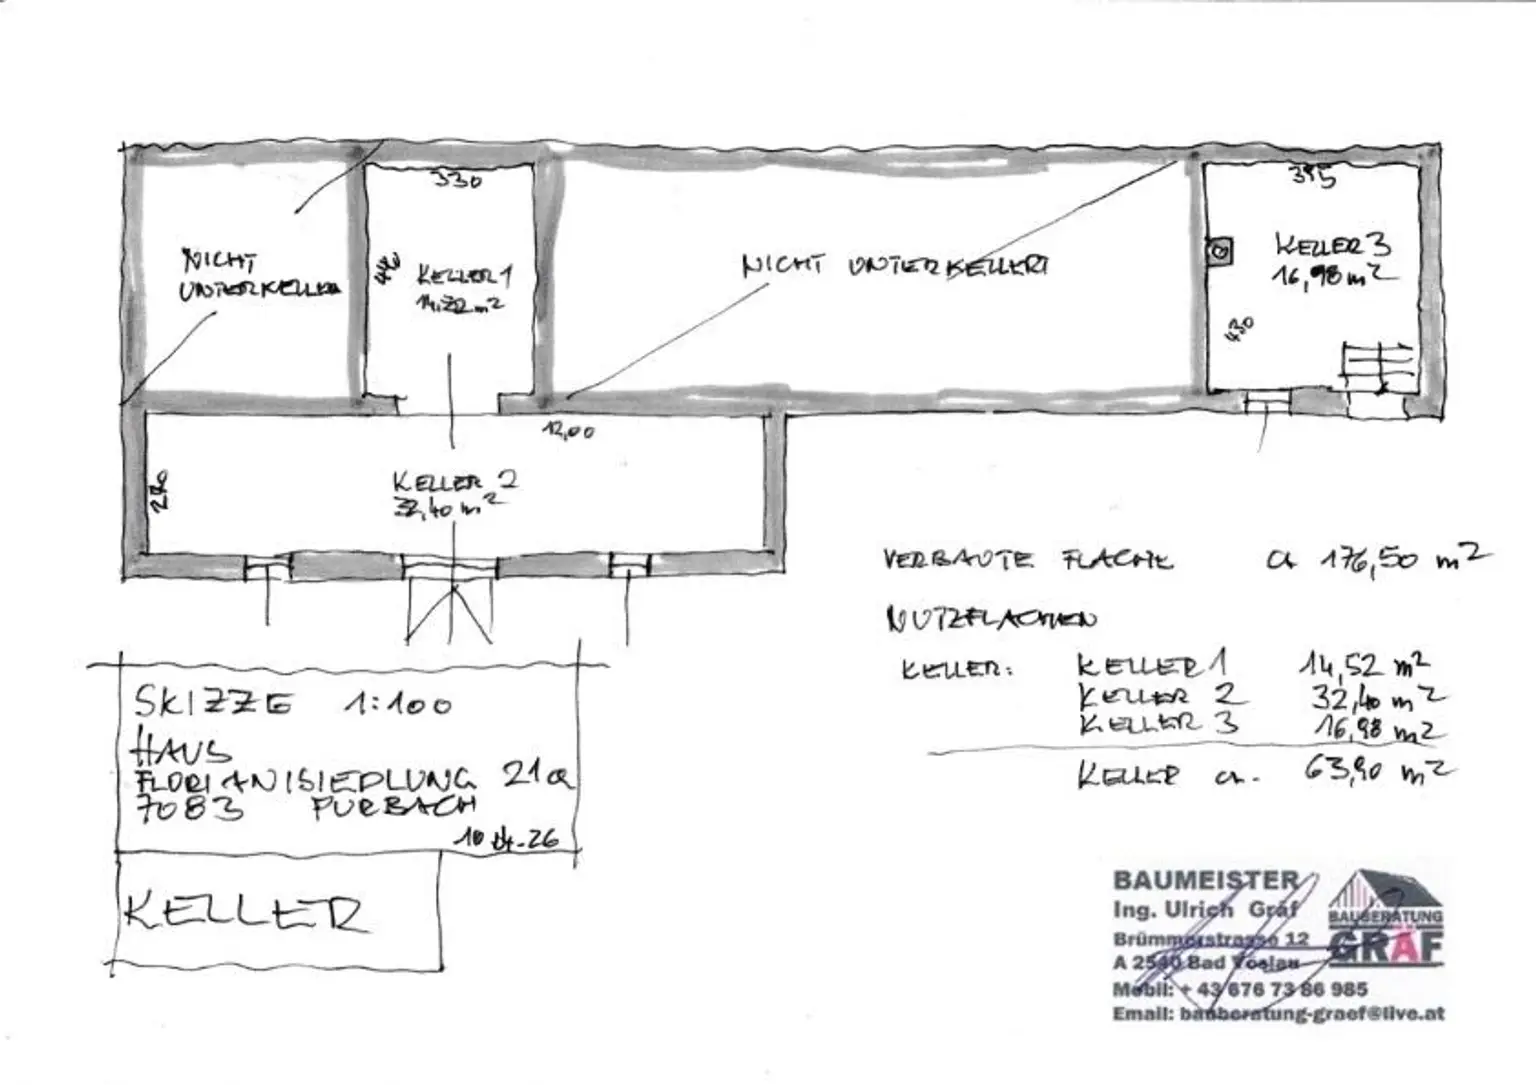 330
395
NICHT
UNTERKELLER
440
KELLER 1
NICHT UNTERKELLERT
KELLER 3
16,98 m²
430
12,00
270
KELLER 2
32,40 m²
VERBAUTE FLÄCHE ca 176,50 m²
NUTZFLÄCHEN
KELLER: KELLER 1 14,52 m²
KELLER 2 32,40 m²
KELLER 3 16,98 m²
KELLER ca. 63,90 m²
SKIZZE 1:100
HAUS
FLORIANISIEDLUNG 21a
7083 PURBACH
10.04.26
KELLER
BAUMEISTER
Ing. Ulrich Gräf
Brümmerstrasse 12
A 2540 Bad Vöslau
Mobil: + 43 676 73 86 985
Email: bauberatung-graef@live.at
BAUBERATUNG
GRÄF